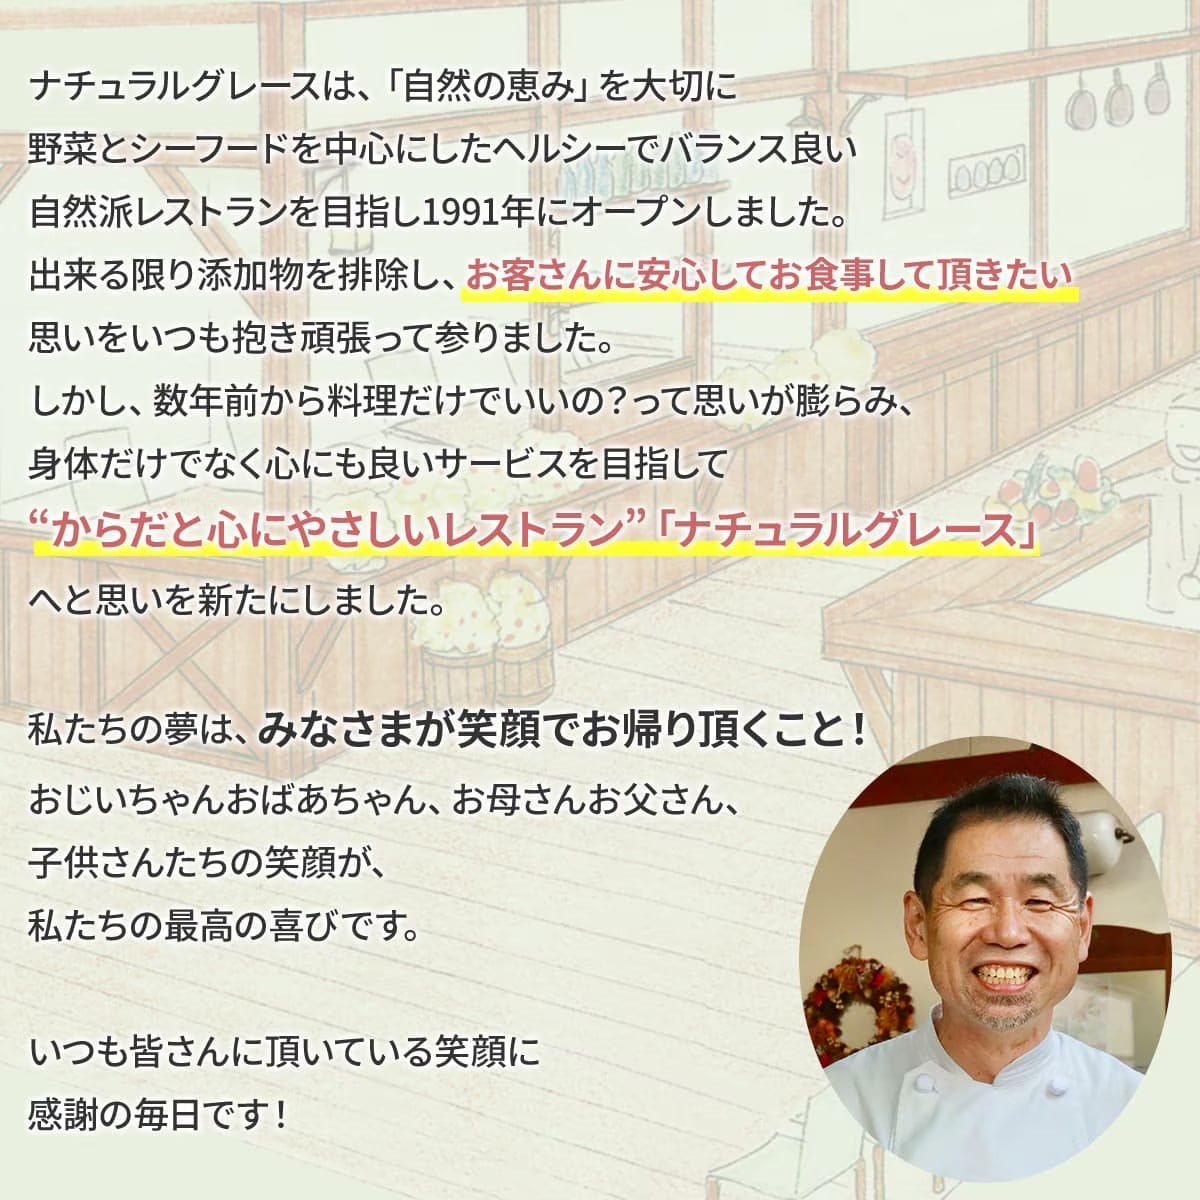 ナチュラルグレースは、「自然の恵み」を大切に
野菜とシーフードを中心にしたヘルシーでバランス良い
自然派レストランを目指し1991年にオープンしました。
出来る限り添加物を排除し、お客さんに安心してお食事して頂きたい
思いをいつも抱き頑張って参りました。
しかし、数年前から料理だけでいいの？って思いが膨らみ、
身体だけでなく心にも良いサービスを目指して
“からだと心にやさしいレストラン”「ナチュラルグレース」
へと思いを新たにしました。
私たちの夢は、みなさまが笑顔でお帰り頂くこと！
おじいちゃんおばあちゃん、お母さんお父さん、
子供さんたちの笑顔が、
私たちの最高の喜びです。
いつも皆さんに頂いている笑顔に
感謝の毎日です！